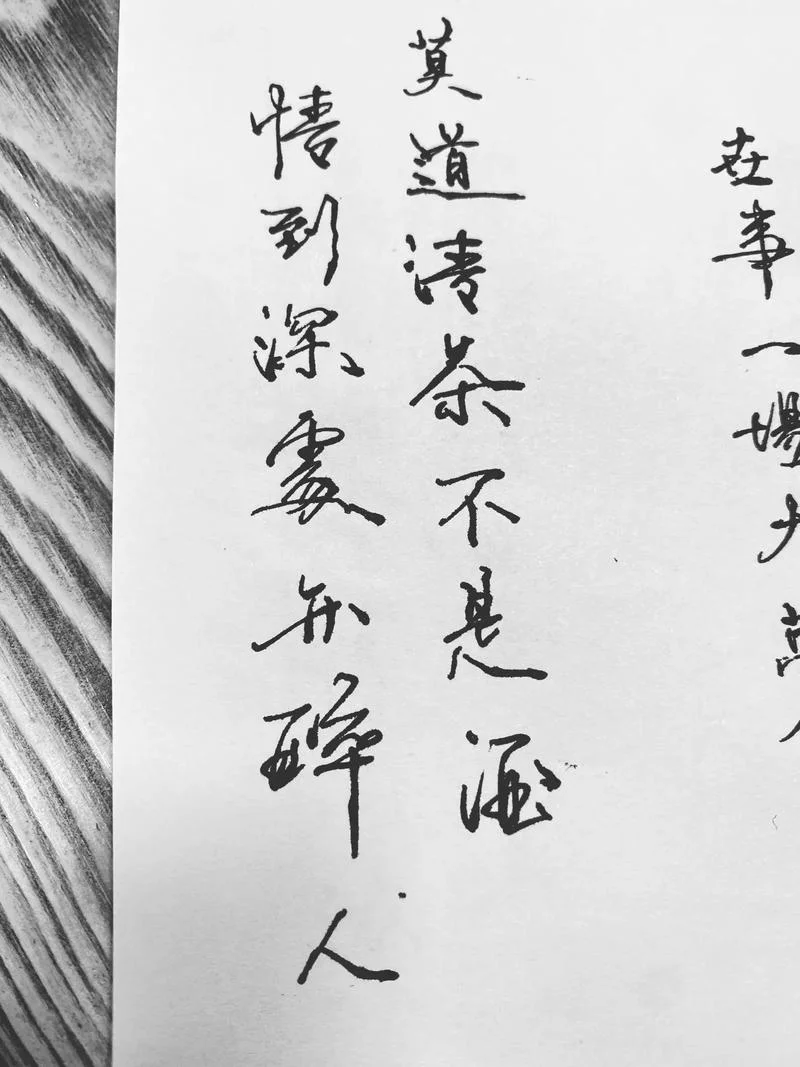 世事一場大
莫道清茶不是酒
情到深處亦醉人